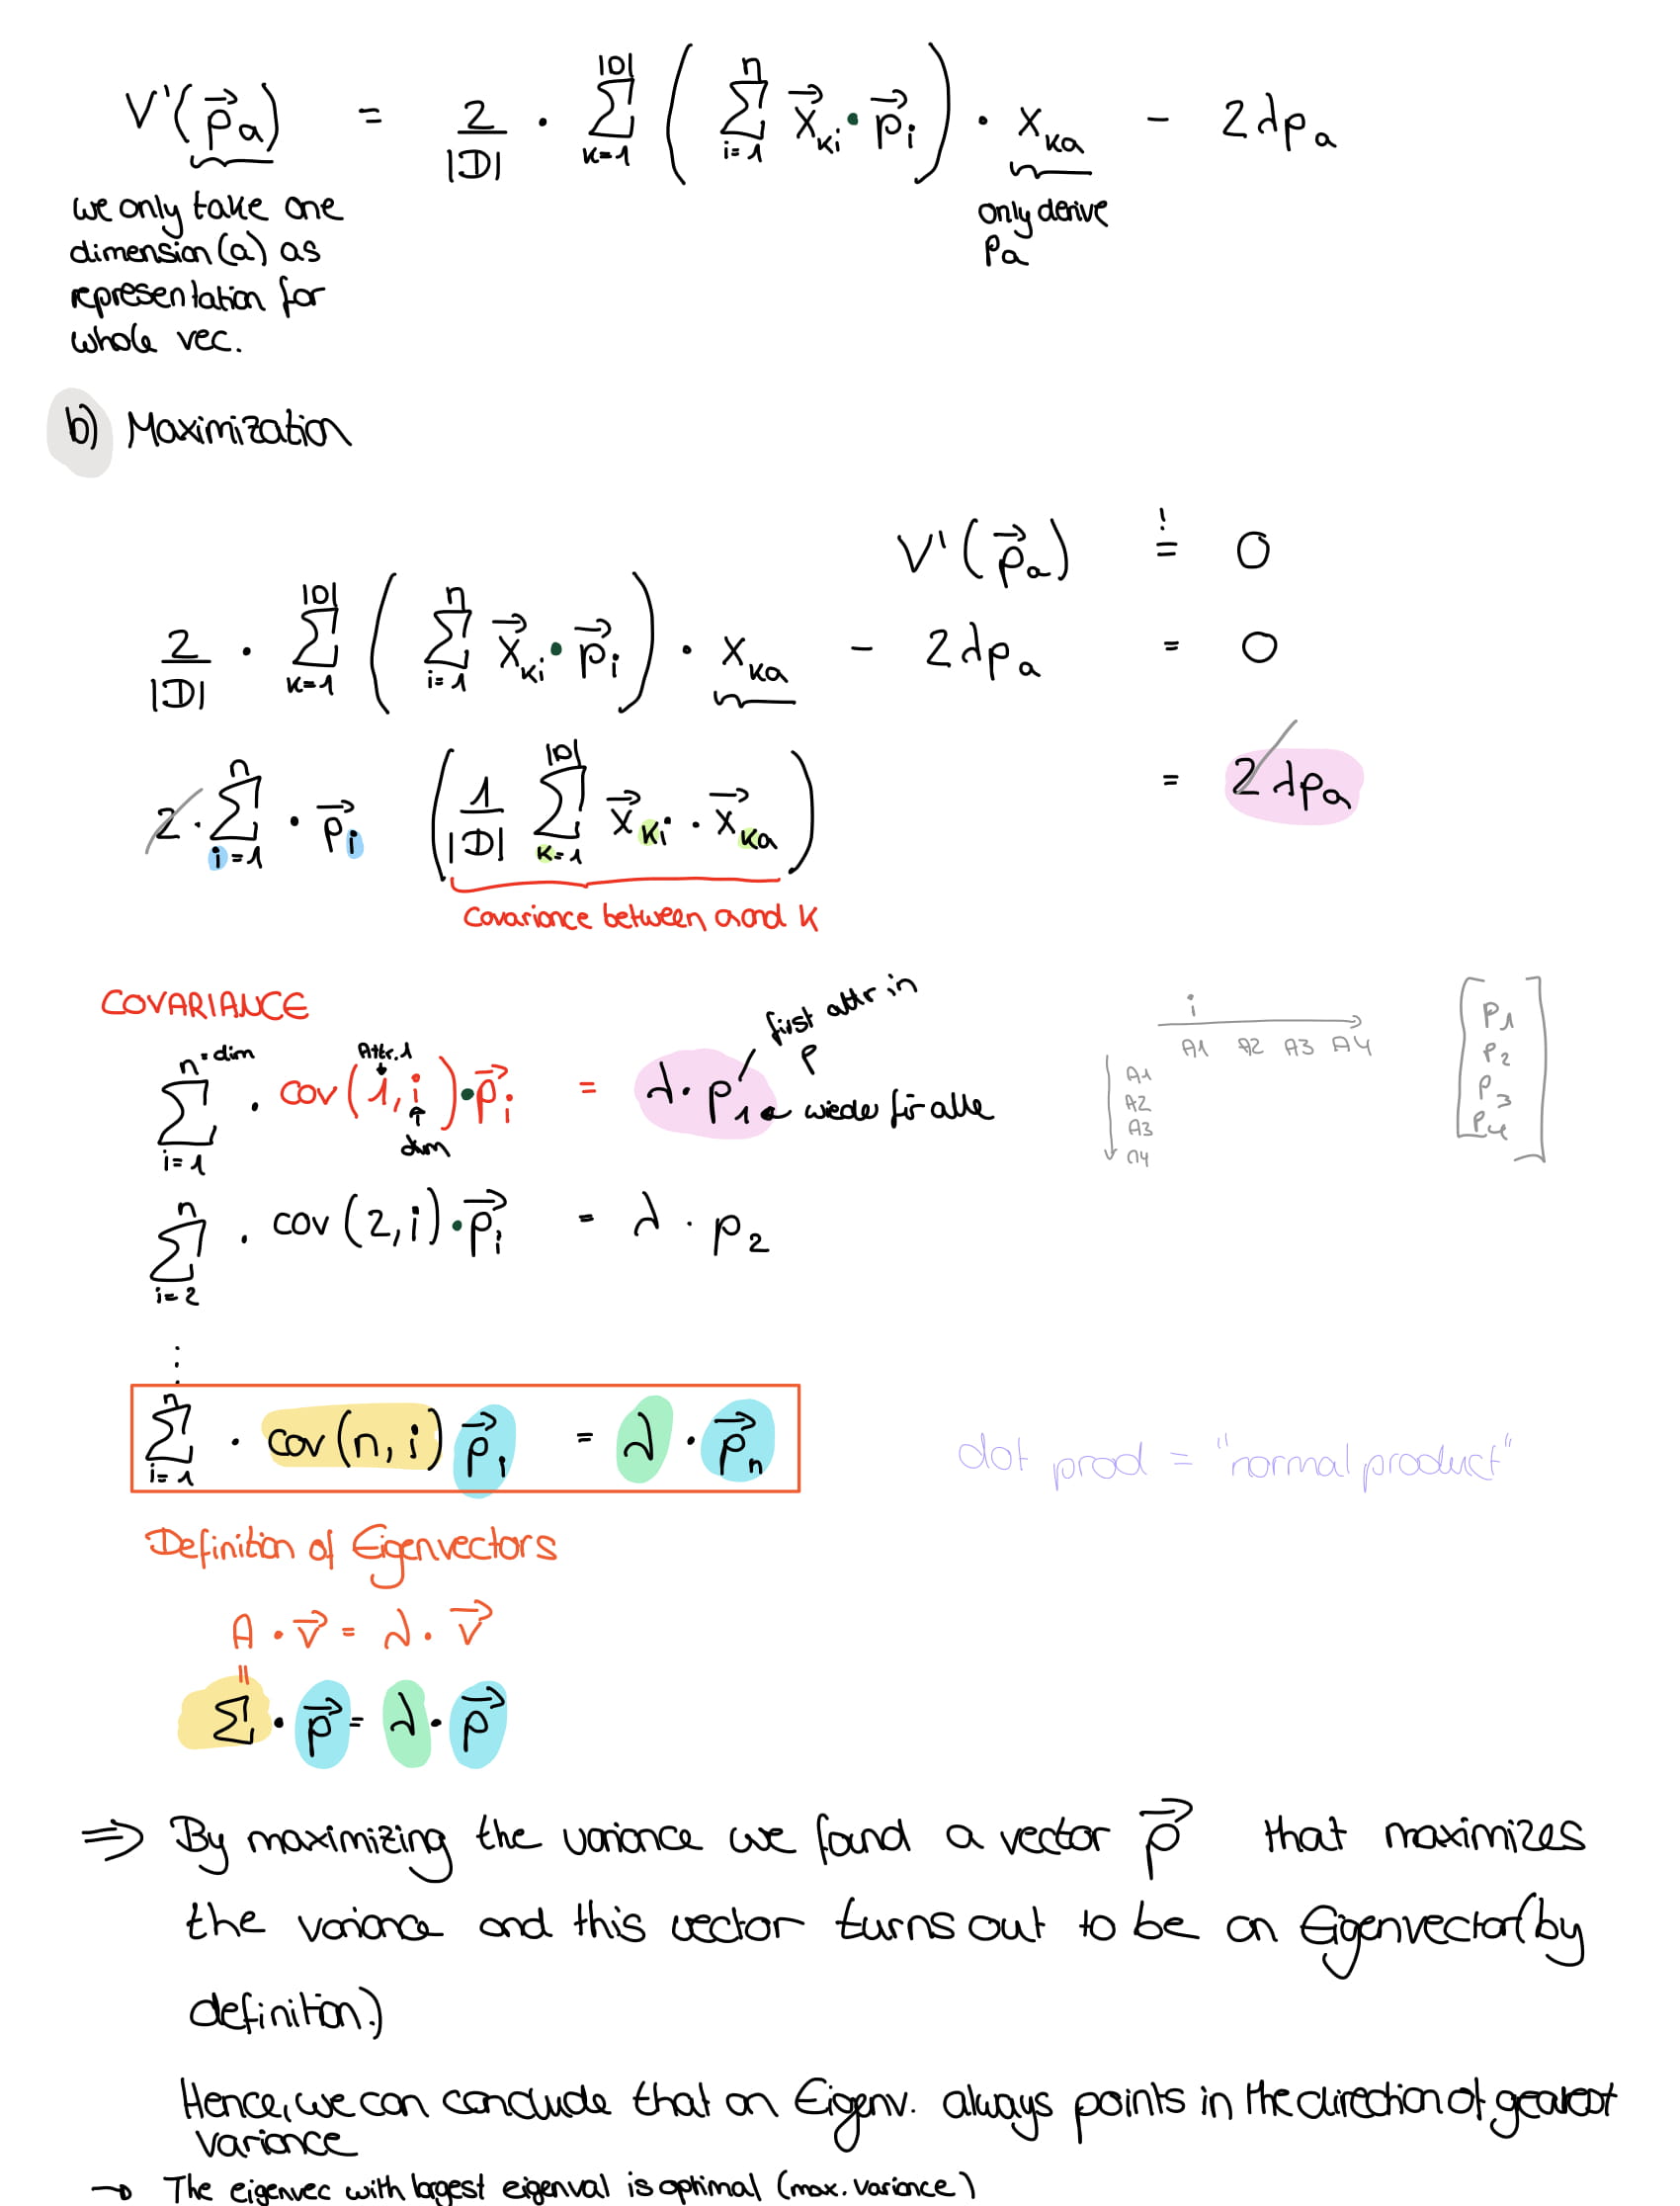 V'(p⃗ₐ) = 2/|D| · Σ_{k=1}^{|D|} ( Σ_{i=1}^{n} x⃗_{ki} · p⃗_i ) · x_{ka} - 2λpₐ
we only take one
dimension (a) as
representation for
whole vec.
only derive
pₐ
b) Maximization
V'(p⃗ₐ) =! 0
2/|D| · Σ_{k=1}^{|D|} ( Σ_{i=1}^{n} x⃗_{ki} · p⃗_i ) · x_{ka} - 2λpₐ = 0
2 · Σ_{i=1}^{n} · p⃗_i ( 1/|D| Σ_{k=1}^{|D|} x⃗_{ki} · x⃗_{ka} ) = 2λpₐ
Covariance between a and k
COVARIANCE
Σ_{i=1}^{n = dim} · cov(1, i) · p⃗_i = λ · p₁
Attr. 1
dim
first attr in
p
wieder für alle
i
A1 A2 A3 A4
A1
A2
A3
A4
p₁
p₂
p₃
p₄
Σ_{i=2}^{n} · cov(2, i) · p⃗_i = λ · p₂
⋮
Σ_{i=1}^{n} · cov(n, i) p⃗_i = λ · p⃗_n
dot prod = "normal product"
Definition of Eigenvectors
A · v⃗ = λ · v⃗
=
Σ · p⃗ = λ · p⃗
⇒ By maximizing the variance we found a vector p⃗ that maximizes
the variance and this vector turns out to be an Eigenvector (by
definition.)
Hence, we can conclude that an Eigenv. always points in the direction of gearest
variance
→ The eigenvec with largest eigenval is optimal (max. variance)